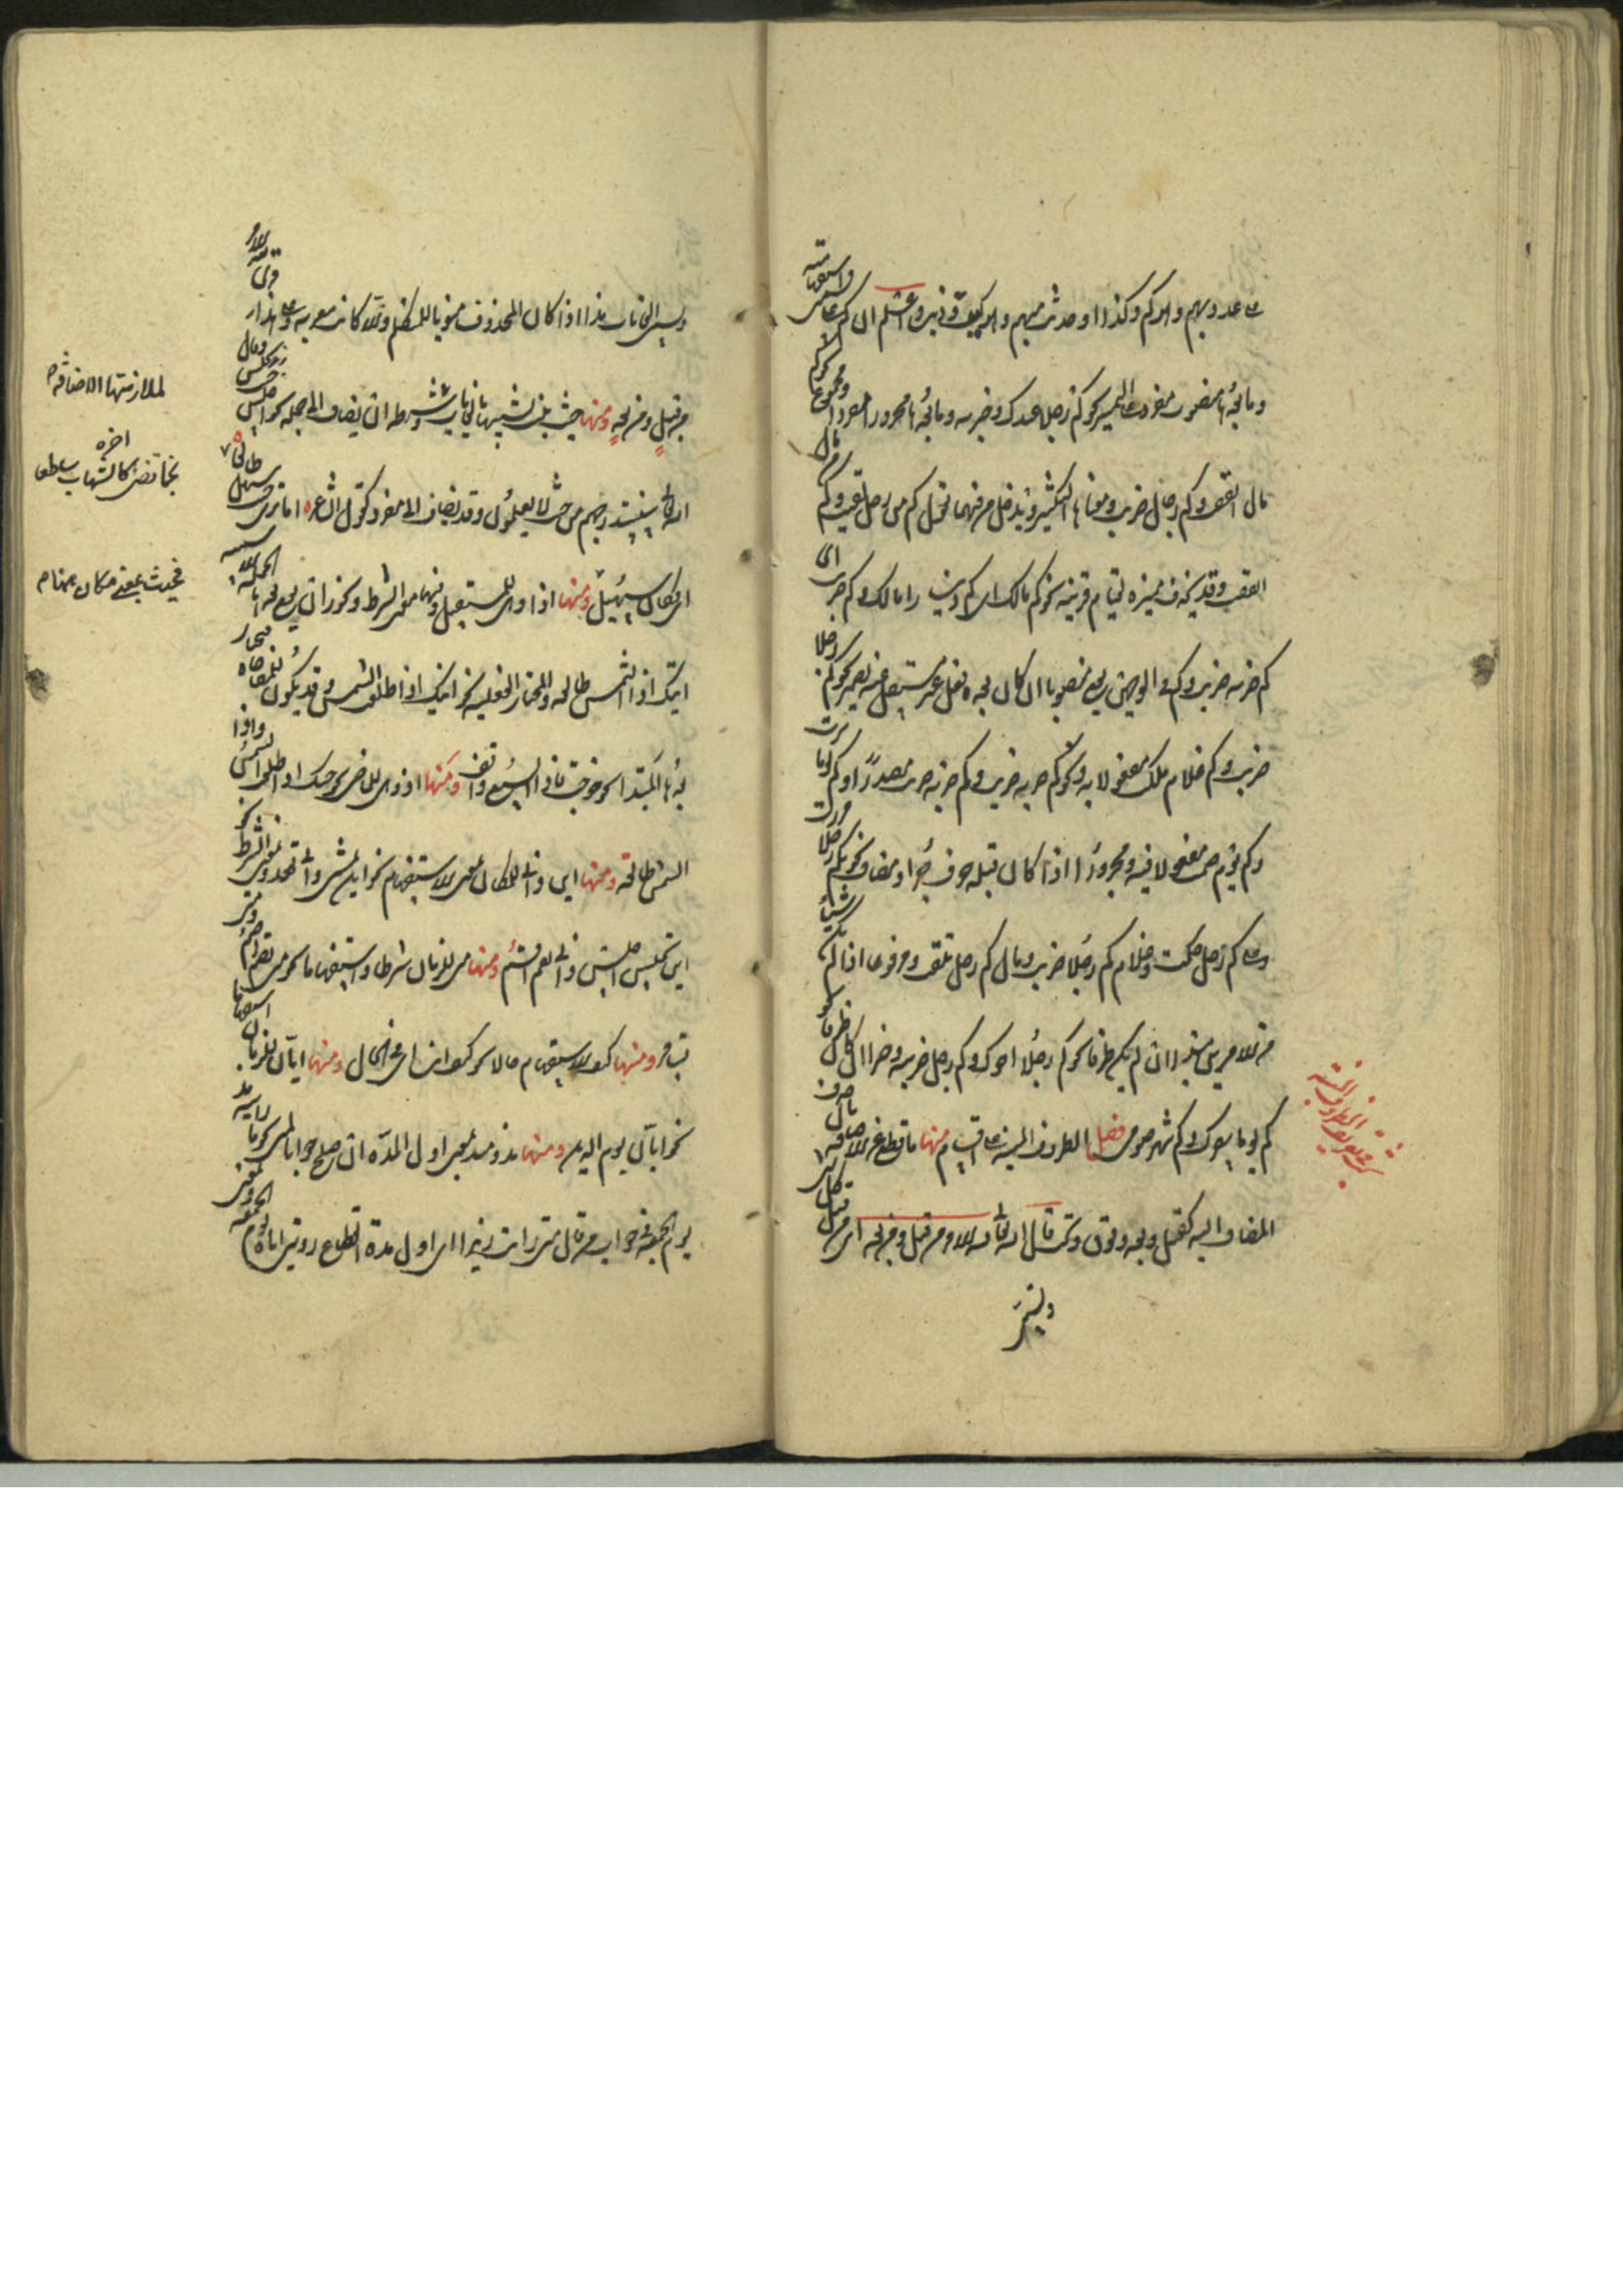 على عدد مبهم وهو كم وكذا او حديث مبهم وهو كيت وذيت واعلم ان كم على قسمين استفهامية
وما بعدها منصوب مفرد على التمييز نحو كم رجلا عندك وخبرية وما بعدها مجرور مفرد نحو كم
مال انفقته وكم رجال ضربت ومعناها التكثير وتدخل من فيهما تقول كم من رجل لقيته وكم من مال
انفقته وقد يحذف مميزه لقيام قرينة نحو كم مالك اى كم دينارا مالك وكم ضربت اى
كم ضربة ضربت وكم فى الوجهين يقع منصوبا ان كان بعده فعل غير مشتغل عنه بضميره نحو كم رجلا
ضربت وكم غلام ملكت مفعولا به ونحو كم ضربة ضربت وكم ضربة ضربت مصدرا وكم يوما سرت
وكم يوم صمت مفعولا فيه ومجرورا اذا كان قبله حرف جر او مضاف نحو بكم رجلا مررت
وعلى كم رجل حكمت وغلام كم رجلا ضربت ومال كم رجل سلبت ومرفوعا اذا لم يكن شيئا
من الامرين مبتدأ ان لم يكن ظرفا نحو كم رجلا اخوك وكم رجل ضربته وخبرا ان كان ظرفا نحو
كم يوما سفرك وكم شهر صومى فصل الظروف المبنية على اقسام منها ما قطع عن الاضافة بان حذف
المضاف اليه كقبل وبعد وفوق وتحت قال الله تعالى لله الامر من قبل ومن بعد اى من قبل كل شىء
ويسمى
ويسمى الغايات هذا اذا كان المحذوف منويا للمتكلم والا كانت معربة وعلى هذا قرئ لله الامر
من قبل ومن بعد ومنها حيث بنيت تشبيها بالغايات وشرطه ان يضاف الى الجملة نحو اجلس حيث زيد جالس وقال
الله تعالى سنستدرجهم من حيث لا يعلمون وقد يضاف الى المفرد كقول الشاعر اما ترى حيث سهيل طالعا
اى مكان سهيل ومنها اذا وهى للمستقبل وفيها معنى الشرط ويجوز ان يقع بعدها الجملة الاسمية نحو
اتيتك اذا الشمس طالعة والمختار الفعلية نحو اتيتك اذا طلعت الشمس وقد يكون للمفاجاة فيختار
بعدها المبتدا نحو خرجت فاذا السبع واقف ومنها اذ وهى للماضى نحو جئتك اذ طلعت الشمس واذ
الشمس طالعة ومنها اين وانى للمكان بمعنى الاستفهام نحو اين تمشى وانى تقعد وبمعنى الشرط نحو
اين تجلس اجلس وانى تقم اقم ومنها متى للزمان شرطا واستفهاما نحو متى تصم اصم ومتى
تسافر ومنها كيف للاستفهام حالا نحو كيف انت اى فى اى حال ومنها ايان للزمان استفهاما
نحو ايان يوم الدين ومنها مذ ومنذ بمعنى اول المدة ان صلح جوابا لمتى نحو ما رايته مذ
يوم الجمعة فى جواب من قال متى رايت زيدا اى اول مدة انقطاع رؤيتى اياه يوم الجمعة وبمعنى
لملازمتها الاضافة
اخره
نجما تضىء كالشهاب ساطعا
فحيث بمعنى مكان ههنا